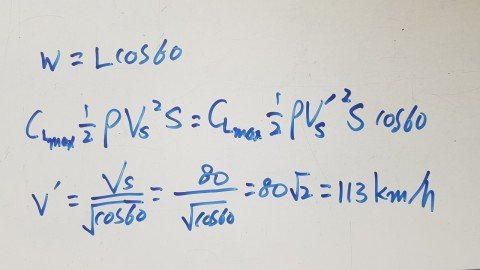 W = Lcos60
C_Lmax 1/2 ρVs²S = C_Lmax 1/2 ρVs'²S cos60
V' = Vs/√cos60 = 80/√cos60 = 80√2 = 113 km/h